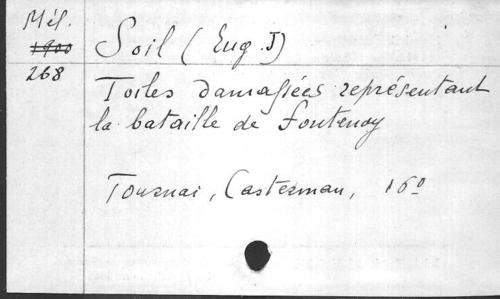 Mél.
1900
268
Soil (Eug. J)
Toiles damassées représentant
la bataille de Fontenoy
Tournai, Casterman, 16º